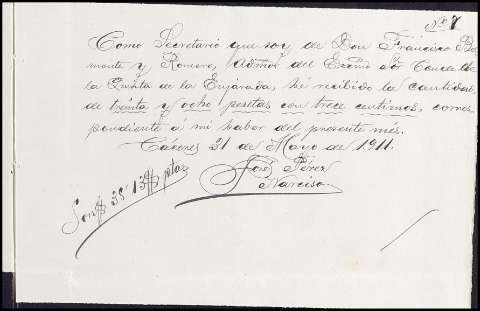 Nº 7
Como Secretario que soy de Don Francisco Be-
monte y Romero, Admor del Excmo Sor Conde de
la Quinta de la Enjarada, hé recibido la cantidad
de treinta y ocho pesetas con trece centimos, corres-
pondiente á mi haber del presente més.
Caceres 31 de Mayo de 1911.
José Pérez
Narciso
Son $ 38'13 $ ptas